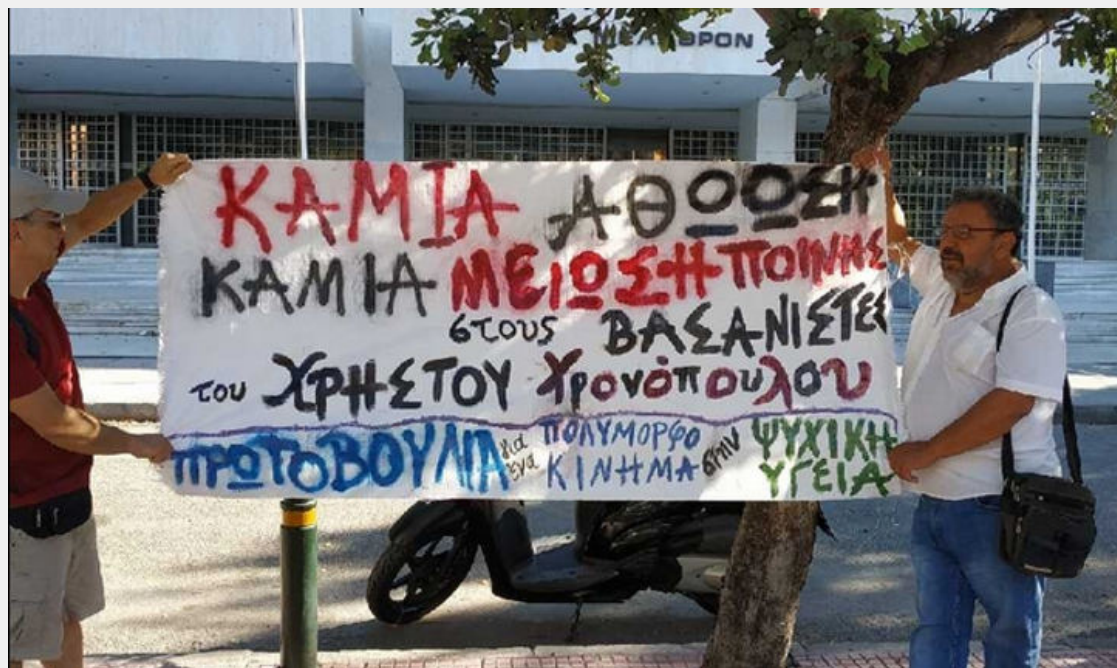 ΜΕΛΑΘΡΟΝ
ΚΑΜΙΑ ΑΘΩΩΣΗ
ΚΑΜΙΑ ΜΕΙΩΣΗ ΠΟΙΝΗΣ
στους ΒΑΣΑΝΙΣΤΕΣ
του ΧΡΗΣΤΟΥ Χρονόπουλου
ΠΡΩΤΟΒΟΥΛΙΑ για ένα ΠΟΛΥΜΟΡΦΟ ΚΙΝΗΜΑ στην ΨΥΧΙΚΗ ΥΓΕΙΑ